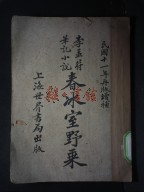 民國十一年再版增補
李孟符
筆記小說
春冰室野乘
上海世界書局出版